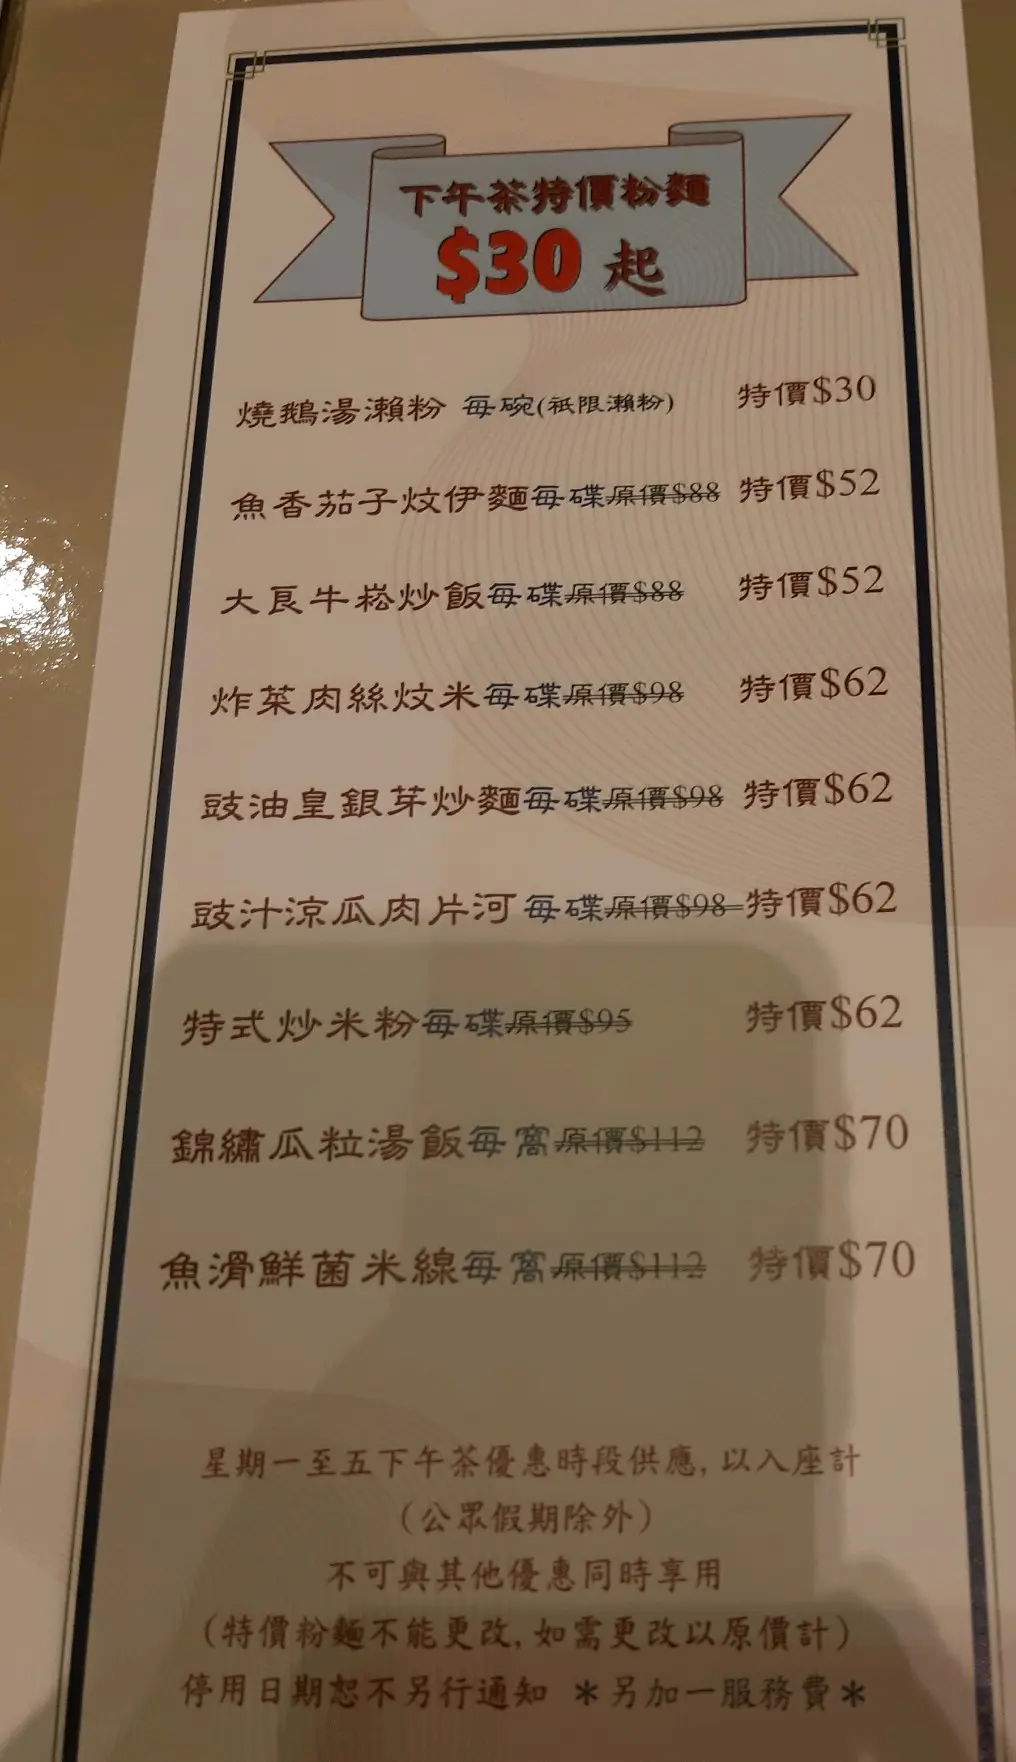 下午茶特價粉麵
$30 起
燒鵝湯瀨粉 每碗(祇限瀨粉) 特價$30
魚香茄子炆伊麵每碟原價$88 特價$52
大良牛崧炒飯每碟原價$88 特價$52
炸菜肉絲炆米每碟原價$98 特價$62
豉油皇銀芽炒麵每碟原價$98 特價$62
豉汁涼瓜肉片河每碟原價$98 特價$62
特式炒米粉每碟原價$95 特價$62
錦繡瓜粒湯飯每窩原價$112 特價$70
魚滑鮮菌米線每窩原價$112 特價$70
星期一至五下午茶優惠時段供應, 以入座計
(公眾假期除外)
不可與其他優惠同時享用
(特價粉麵不能更改, 如需更改以原價計)
停用日期恕不另行通知 *另加一服務費*